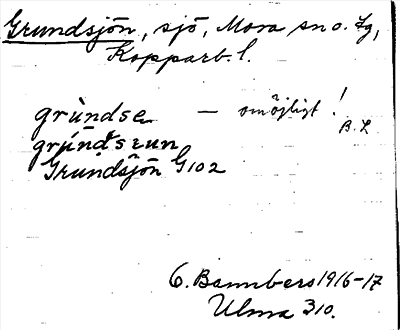 Grundsjön, sjö, Mora sn o. Lg,
Kopparb. l.
grùndsę – omöjligt!
B. L
grúndsɛun
Grundsjön G102
C. Bannbers 1916-17
Ulma 310.